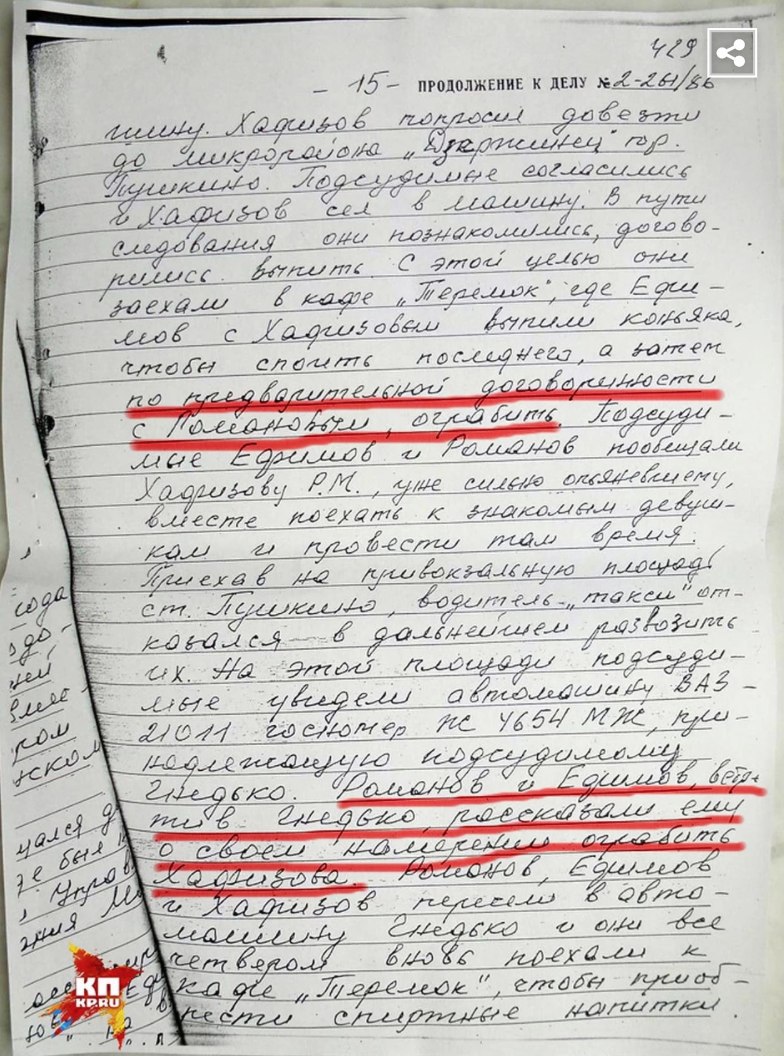 429
- 15 - ПРОДОЛЖЕНИЕ К ДЕЛУ № 2-261/86
шину. Хафизов попросил довезти
до микрорайона „Дзержинец" гор.
Пушкино. Подсудимые согласились
и Хафизов сел в машину. В пути
следования они познакомились, догово-
рились выпить. С этой целью они
заехали в кафе „Теремок", где Ефи-
мов с Хафизовым выпили коньяка,
чтобы споить последнего, а затем
по предварительной договоренности
с Романовым, ограбить. Подсуди-
мые Ефимов и Романов пообещали
Хафизову Р.М., уже сильно опьяневшему,
вместе поехать к знакомым девуш-
кам и провести там время.
Приехав на привокзальную площадь
ст. Пушкино, водитель „такси" от-
казался в дальнейшем развозить
их. На этой площади подсуди-
мые увидели автомашину ВАЗ-
21011 госномер Ж 4654 МЖ, при-
надлежащую подсудимому
Гнедько. Романов и Ефимов, встре-
тив Гнедько, рассказали ему
о своем намерении ограбить
Хафизова. Романов, Ефимов
и Хафизов пересели в авто-
машину Гнедько и они все
четвером вновь поехали к
кафе „Теремок", чтобы приоб-
рести спиртные напитки.
года
ром
нском
был
Управ
КП
KP.RU